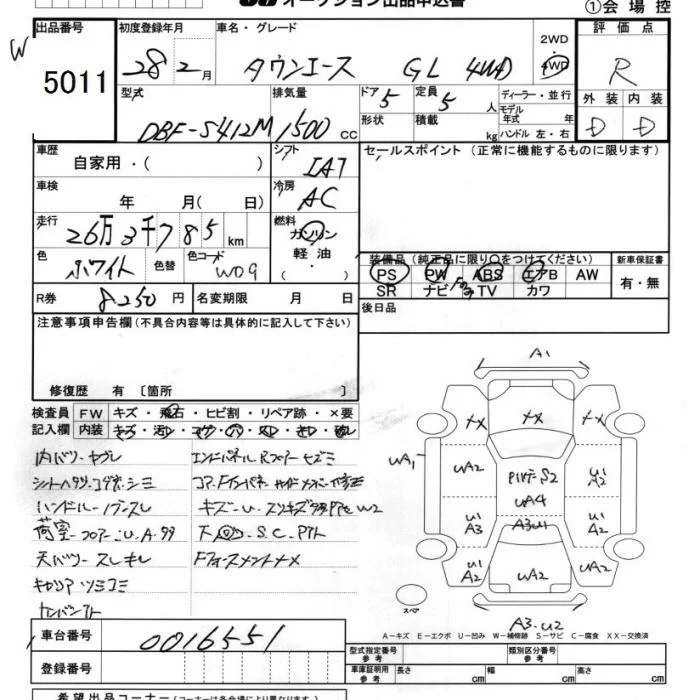 オークション出品申込書 ①会場控
W
出品番号 初度登録年月 車名・グレード 2WD 4WD 評価点
5011 28 2月 タウンエース GL 4WD R
型式 排気量 ドア 5 定員 5人 ディーラー・並行 外装 内装
DBF-S412M 1500cc 形状 積載 kg モデル年式 年 ハンドル 左・右 D D
車歴 自家用・( ) シフト IAT セールスポイント(正常に機能するものに限ります)
車検 年 月( 日) 冷房 AC
走行 26万3千785km 燃料 ガソリン
軽油・( )
色 ホワイト 色替 色コード W09 装備品(純正品に限り○をつけてください) 新車保証書
PS PW ABS エアB AW 有・無
SR ナビ TV カワ
R券 8250円 名変期限 月 日 後日品
注意事項申告欄(不具合内容等は具体的に記入して下さい)
修復歴 有 〔箇所 〕
検査員 FW キズ・飛石・ヒビ割・リペア跡・×要
記入欄 内装 キズ・汚レ・コゲ・穴・スレ・キレ・破レ
内バリ・ヤブレ エンドパネル Rフロアーヒズミ
シートヘタリ・コゲ・シミ
ハンドル・ノブスレ キズ・U・W2
荷室フロアーU.A.サビ 下回・S.C.
天バリスレキレ
キャリアツミコミ
A1
XX XX XX
UA1 UA2 S2 U1 A2
UA4
U1 A3 A3U1 U1 A2
U1 A2 UA2 UA2
スペア
A3.U2
A-キズ E-エクボ U-凹み W-補修跡 S-サビ C-腐食 XX-交換済
車台番号 0016551 型式指定番号 参考 類別区分番号 参考
登録番号 車庫証明用 参考 長さ cm 幅 cm 高さ cm
希望出品コーナー(コーナーは各会場により異なります)